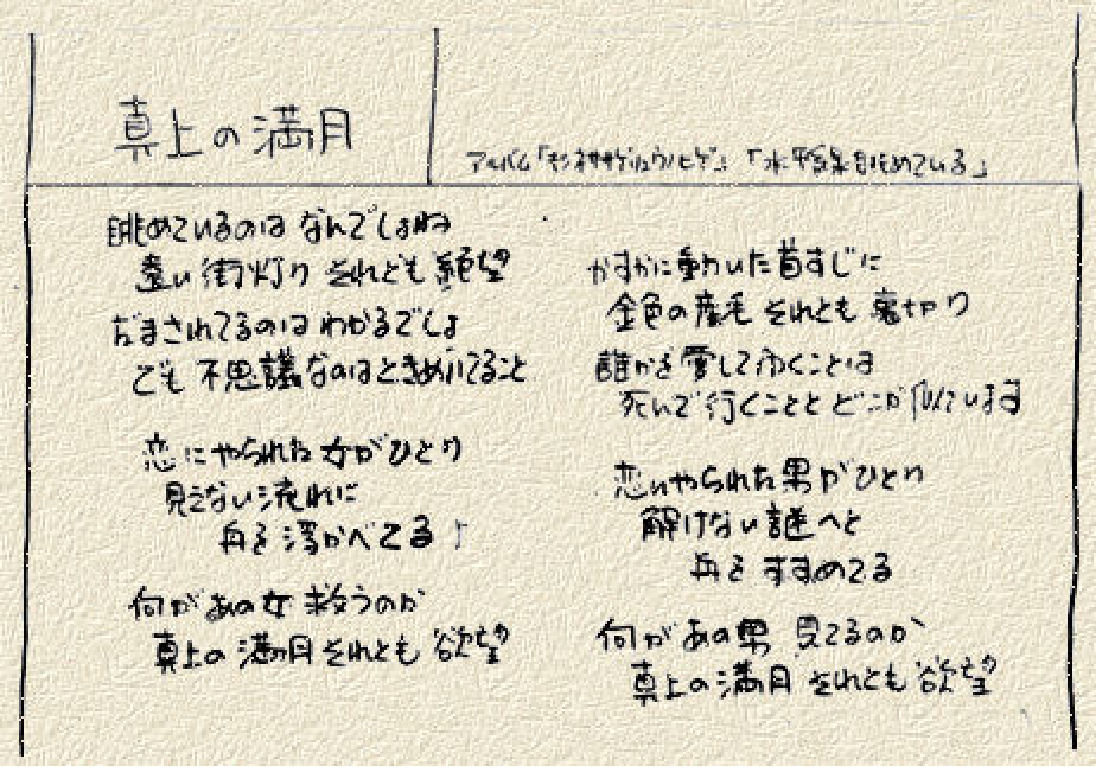 真上の満月
アルバム「 」「水平線を眺めている」
眺めているのは なんでしょね
遠い街灯り それとも絶望
だまされてるのは わかるでしょ
でも 不思議なのはときめいてること
恋にやられた 女がひとり
見えない流れに
舟を浮かべてる
何があの女 救うのか
真上の満月 それとも 欲望
かすかに動いた首すじに
金色の産毛 それとも 裏切り
誰かを愛してゆくことは
死んで行くこととどこか似ています
恋にやられた男がひとり
解けない謎へと
舟をすすめてる
何があの男 見てるのか
真上の満月 それとも欲望